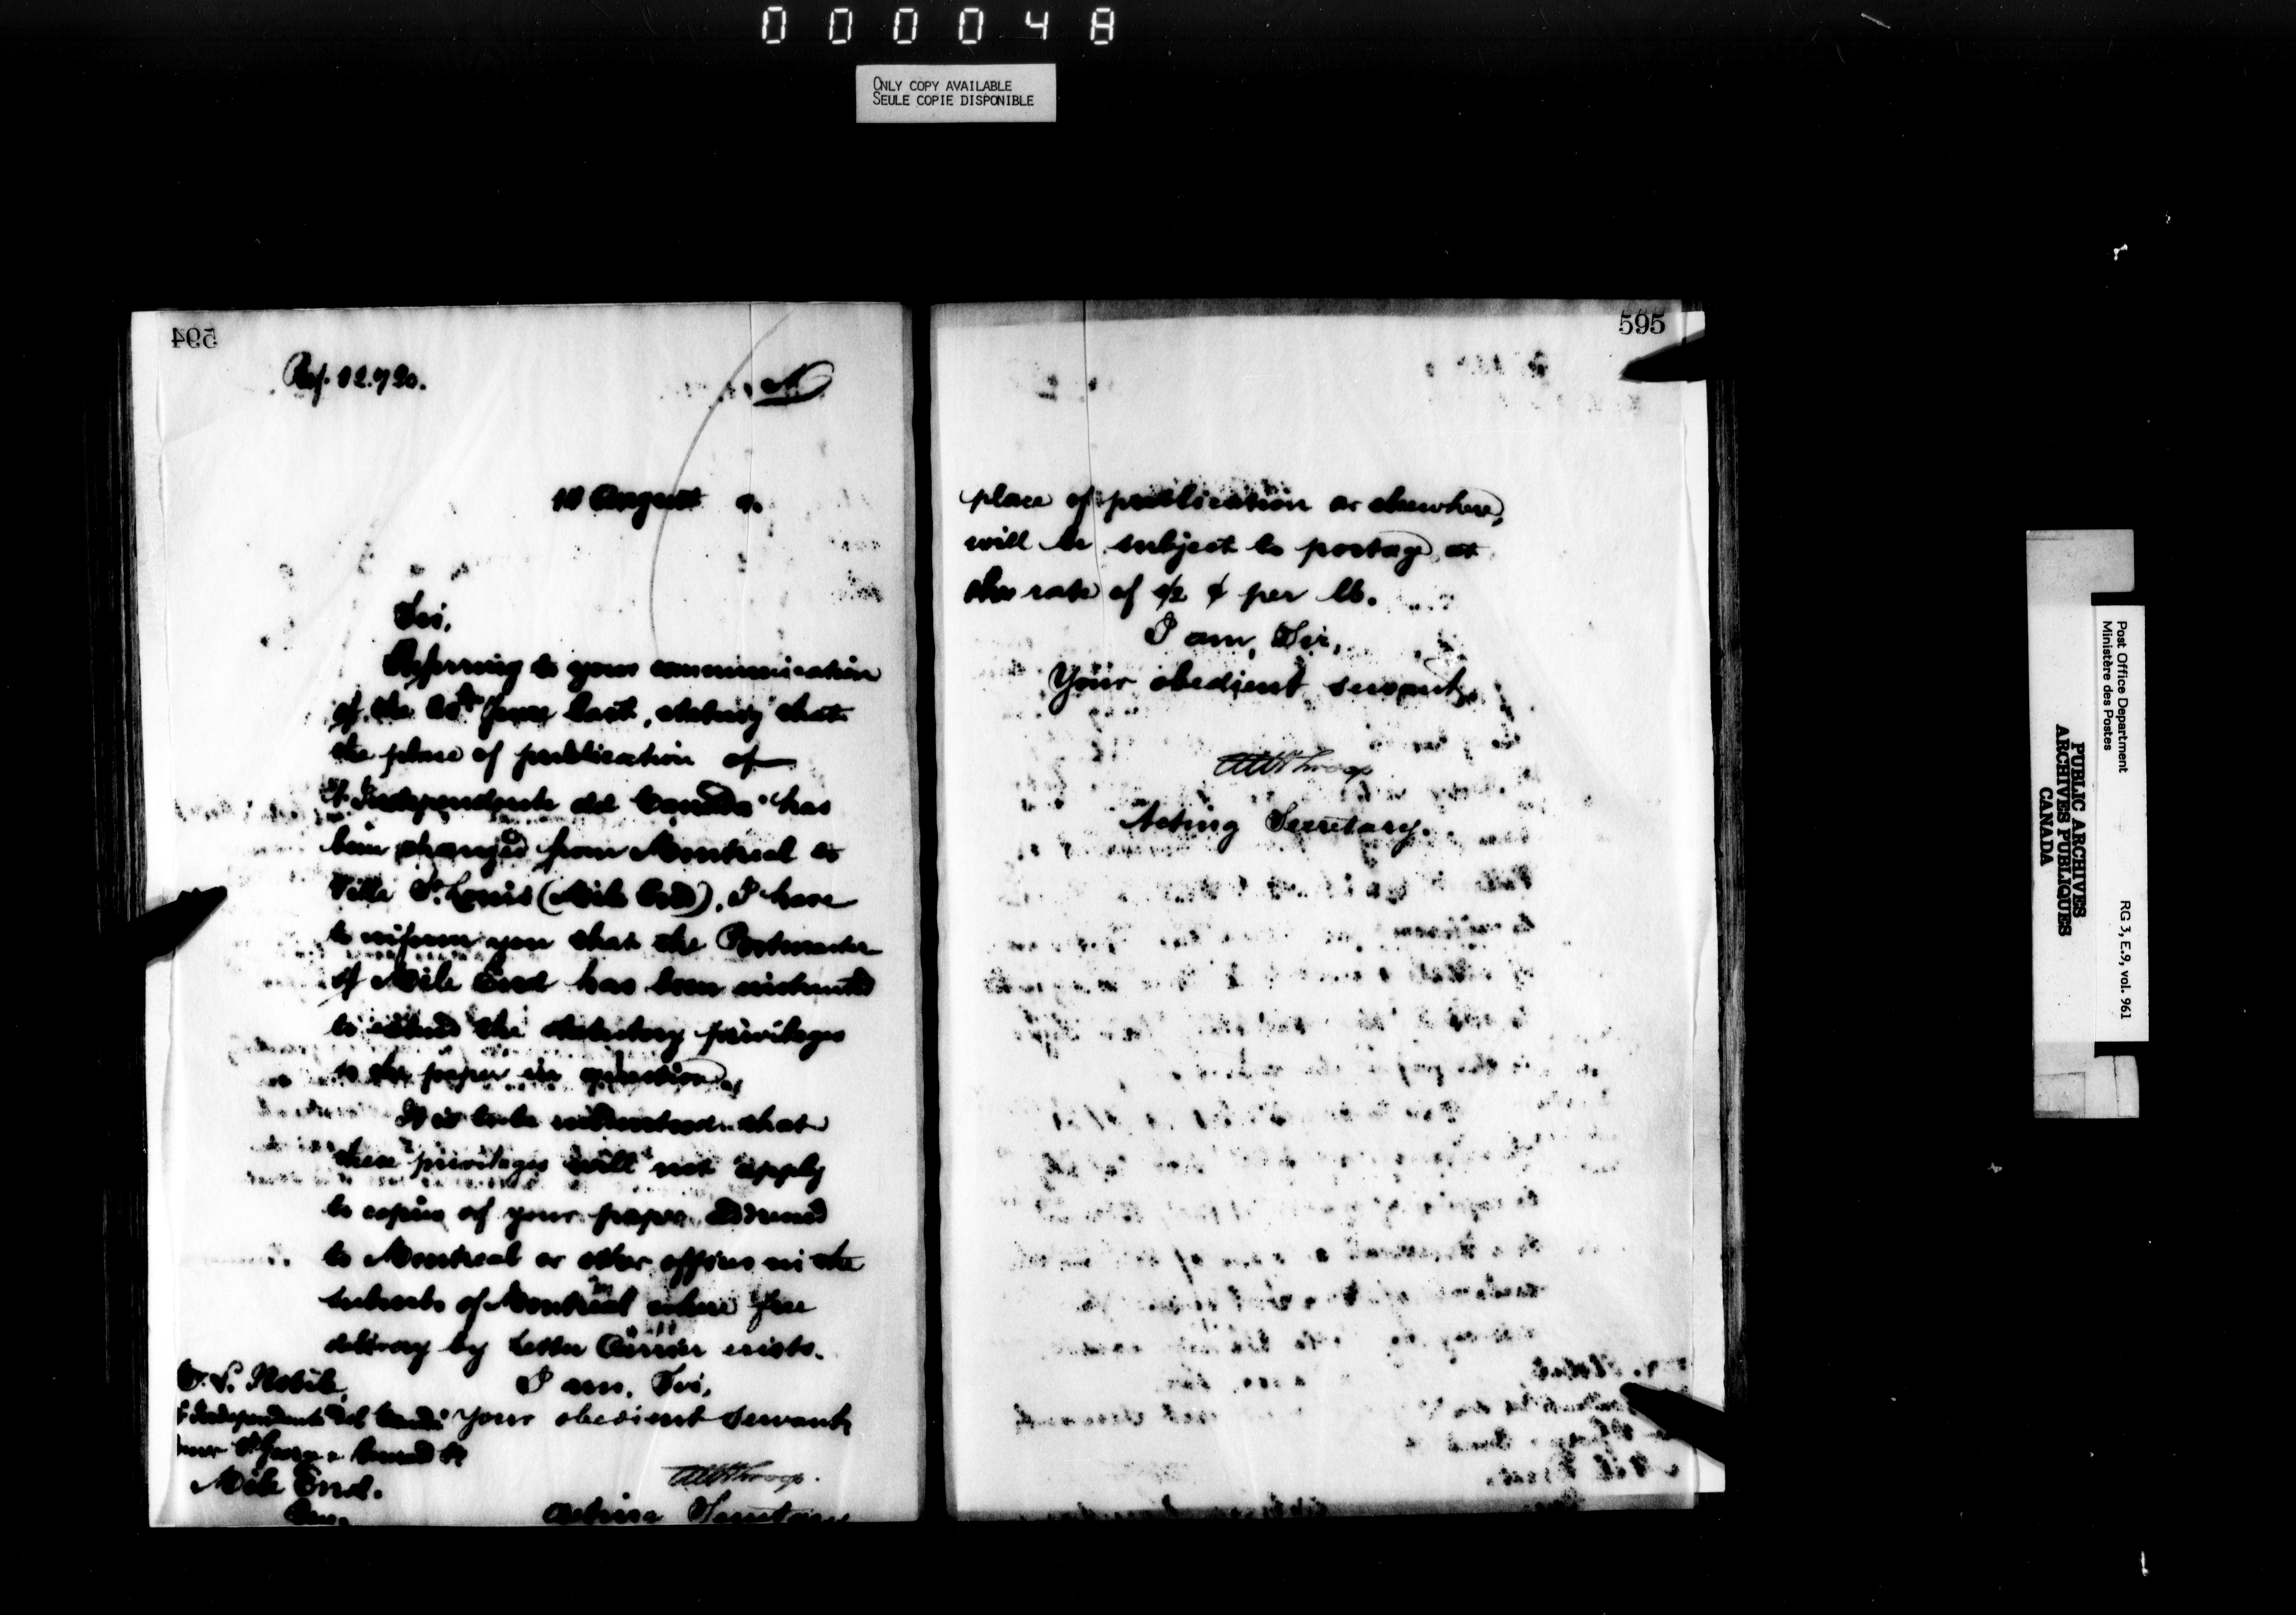 000048
ONLY COPY AVAILABLE
SEULE COPIE DISPONIBLE
594
Ref. 12.720.
10 August 9.
Sir,
Referring to your communication
of the June last, stating that
the place of publication of
"L'Indipendente del Canada" has
been changed from Montreal to
Ville St. Louis (Mile End), I have
to inform you that the Postmaster
of Mile End has been instructed
to extend the statutory privileges
to the paper in question.
It is to be understood that
these privileges will not apply
to copies of your paper addressed
to Montreal or other offices in the
suburbs of Montreal where free
delivery by Letter Carrier exists.
I am, Sir,
Your obedient servant,
Acting Secretary
Nobile,
L'Indipendente del Canada
St.
Mile End.
Que.
595
place of publication or elsewhere,
will be subject to postage at
the rate of 1/2 ¢ per lb.
I am, Sir,
Your obedient servant,
Acting Secretary.
Post Office Department
Ministère des Postes
RG 3, E.9, vol. 961
PUBLIC ARCHIVES
ARCHIVES PUBLIQUES
CANADA